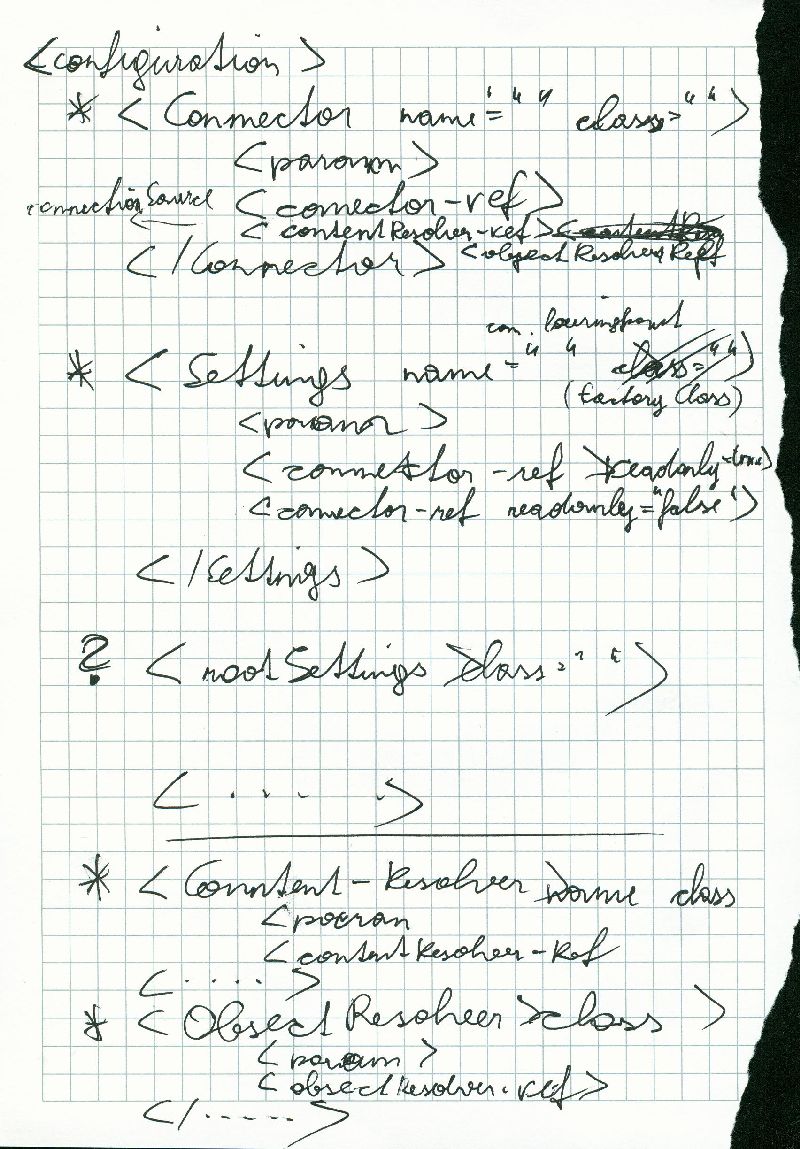 <configuration>
* <Connector name="" class="">
<param>
connectionSource <connector-ref>
<contentResolver-ref>
</Connector> <objectResolverRef
* <Settings name="" class="">
(factory Class)
<param>
<connector-ref readonly=true>
<connector-ref readonly="false">
</Settings>
? <rootSettings class="">
<.... >
* <Content-Resolver name class
<param
<contentResolver-Ref
<.....>
* <ObjectResolver class >
<param>
<objectResolver-ref>
</.....>